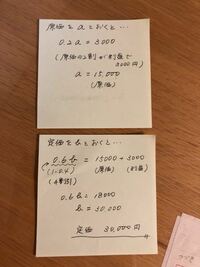 原価を a とおくと…
0.2a = 3000
(原価の2割が利益で
3000円)
a = 15,000
(原価)
定価を b とおくと…
0.6b = 15000 + 3000
(1-0.4) (原価) (利益)
(4割引)
0.6b = 18000
b = 30,000
定価 30,000円